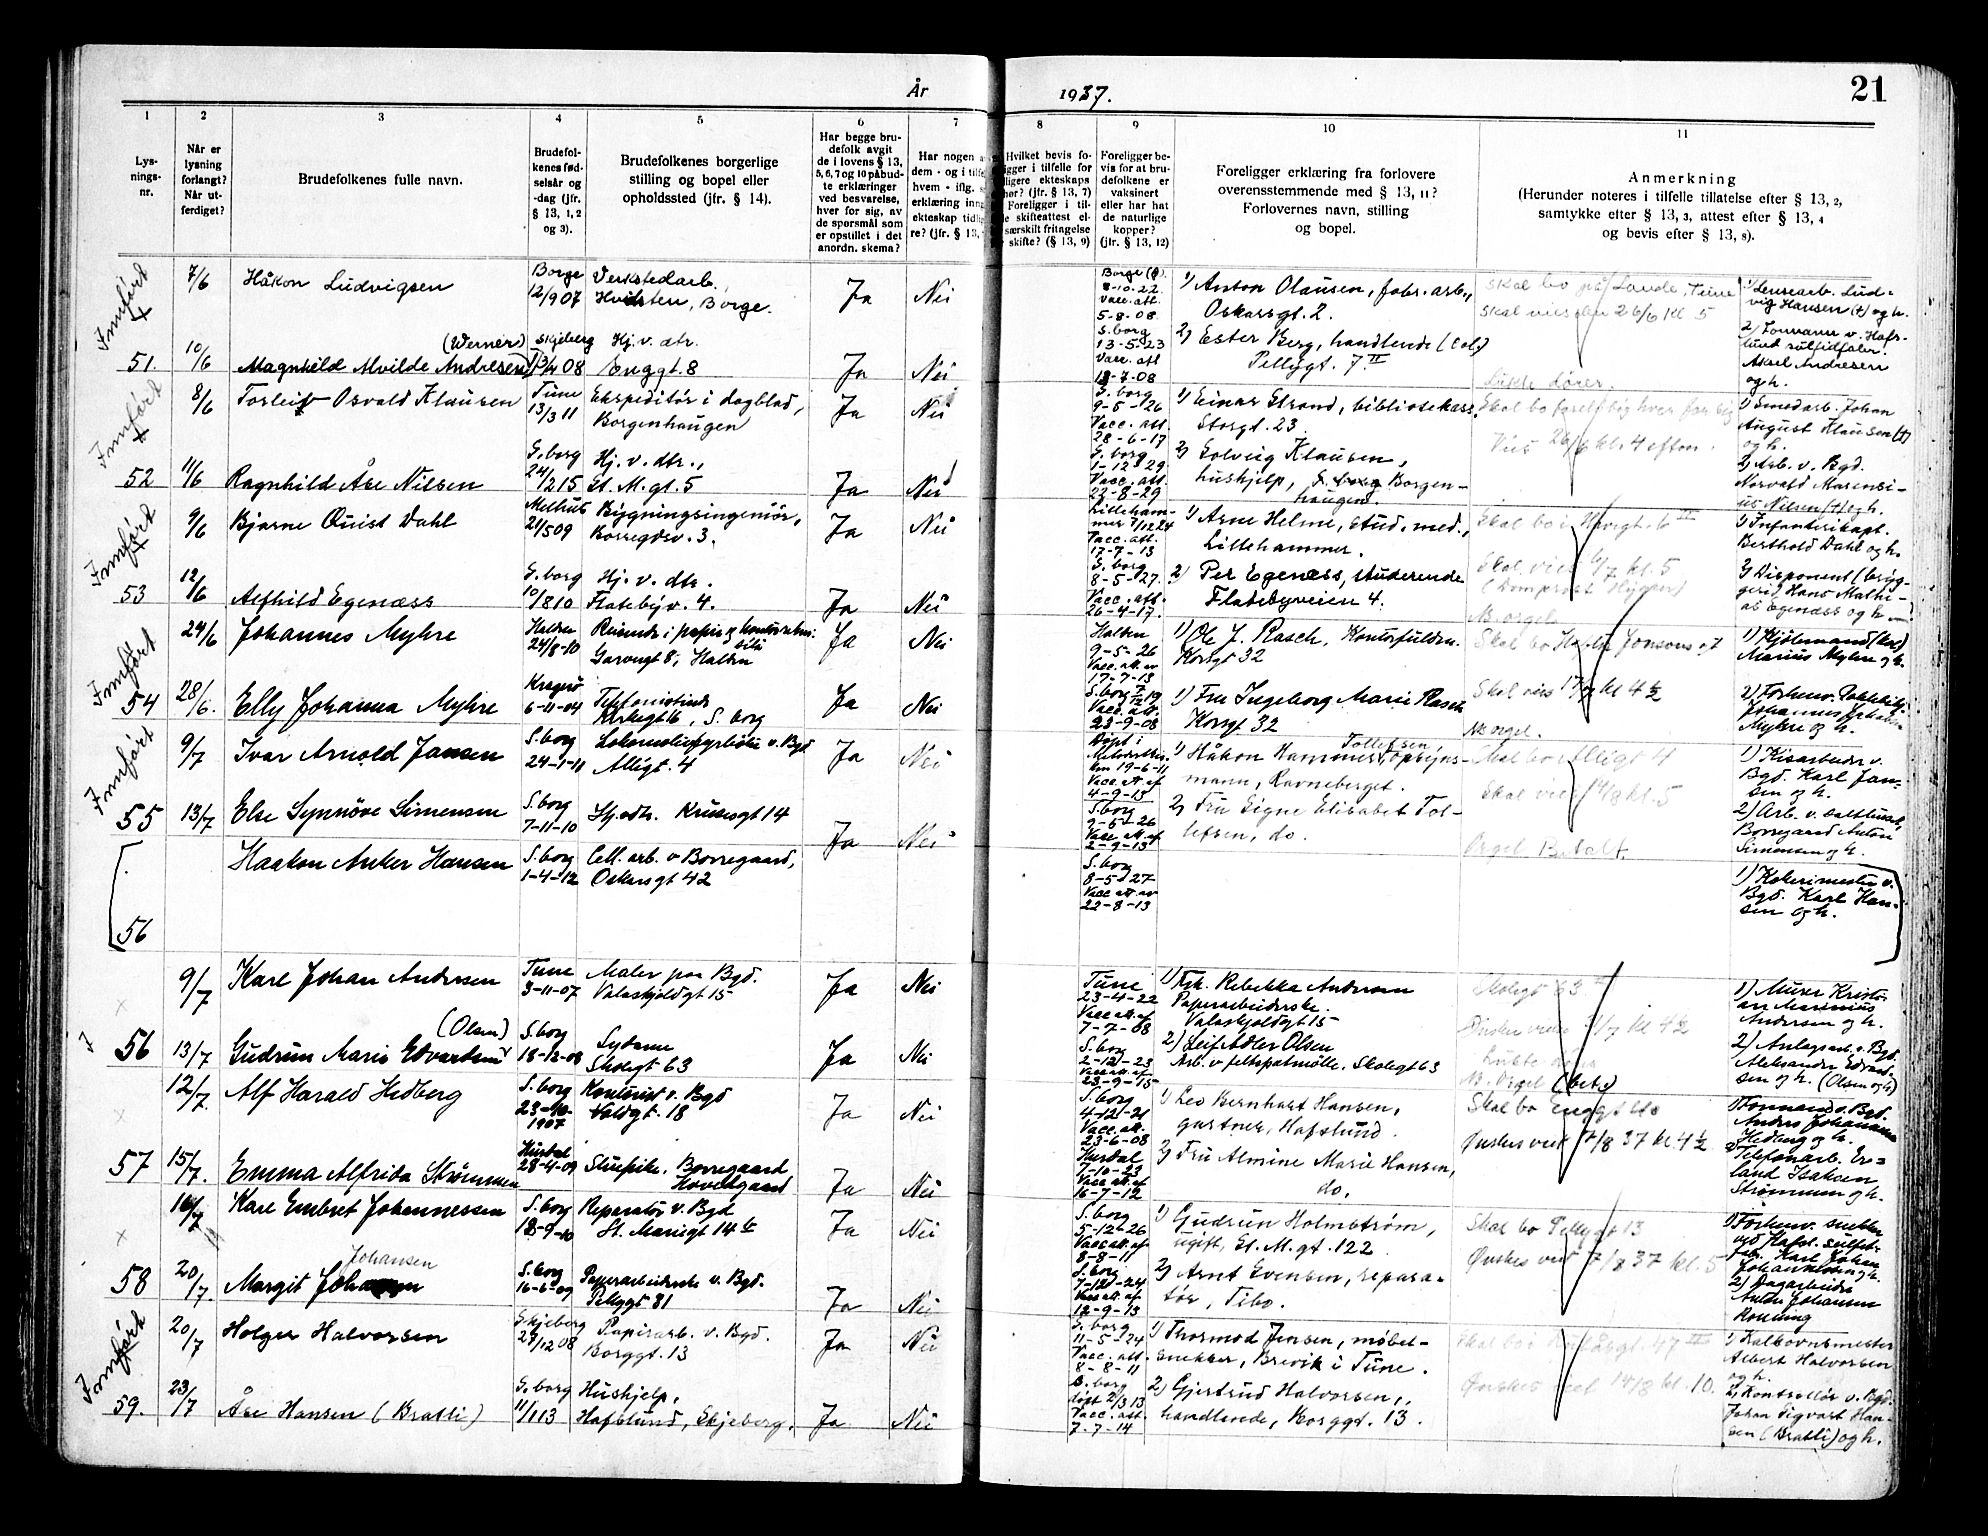 År 1937. 21
1 2 3 4 5 6 7 8 9 10 11
Lysningsnr.
Når er lysning forlangt? Når utferdiget?
Brudefolkenes fulle navn.
Brudefolkenes fødselsår og -dag (jfr. § 13, 1, 2 og 3).
Brudefolkenes borgerlige stilling og bopel eller opholdssted (jfr. § 14).
Har begge brudefolk avgit de i lovens § 13, 5, 6, 7 og 10 påbudte erklæringer ved besvarelse, hver for sig, av de spørsmål som er opstillet i det anordn. skema?
Har nogen a
dem - og i tilfe
hvem - iflg.
erklæring inng
ekteskap tidlig
re? (jfr. § 13,
Hvilket bevis fo-
ligger i tilfelle for
ligere ekteskaps
hør? (jfr. § 13, 7)
Foreligger i til-
le skifteattest el-
særskilt fritagelse
skifte? (§ 13, 9)
Foreligger bevis for at brudefolkene er vaksinert eller har hat de naturlige kopper? (jfr. § 13, 12)
Foreligger erklæring fra forlovere overensstemmende med § 13, 11? Forlovernes navn, stilling og bopel.
Anmerkning
(Herunder noteres i tilfelle tillatelse efter § 13, 2, samtykke efter § 13, 3, attest efter § 13, 4 og bevis efter § 13, 8).
Innført
7/6 Håkon Ludvigsen
Borge 12/9 07
Verkstedarb., Hvidsten, Borge.
Ja Nei
Borge 8-10-22 Vacc. att. 5-8-08
1) Anton Olausen, fabr. arb., Oskarsgt. 2.
Skal bo på Lande, Tune
Skal vies den 26/6 kl 5
1) Lensearb. Ludvig Hansen (+) og h.
51. 10/6 Magnhild Alvilde Andresen (Werner)
Skjeberg 08
Hj. v. dtr. Enggt. 8
Ja Nei
S.borg 13-5-23 Vacc. att 12-7-08
2) Ester Berg, handlende (Col.) Pellygt. 7 II
Lukte dører.
2) Formann v. Hafslund sulfidfabr. Aksel Andresen og h.
Innført
8/6 Torleif Osvald Klausen
Tune 13/3 11
Ekspeditør i dagblad, Borgenhaugen
Ja Nei
S. borg 9-5-26 Vacc. att. 28-6-17
1) Einar Strand, bibliotekass. Storgt. 23.
Skal bo foreløbig hver for sig
Vies 26/6 kl. 4 efterm.
1) Smedarb. Johan August Klausen (+) og h.
52 11/6 Ragnhild Åse Nilsen
S. borg 24/2 15
Hj. v. dtr., St. M. gt. 5
Ja Nei
S. borg 1-12-29 Vacc. att. 23-8-29
2) Solveig Klausen, hushjelp, Borgenhaugen.
2) Arb. v. Bgd. Norvald Marensius Nilsen (+) og h.
Innført
9/6 Bjarne Quist Dahl
Melhus 21/5 09
Bygningsingeniør, Borregdsv. 3.
Ja Nei
Lillehammer 7/12 24 Vacc. att. 17-7-13
1) Arne Helme, stud. med., Lillehammer.
1) Infanterikapt. Berthold Dahl og h.
53 12/6 Alfhild Egenæss
S. borg 10/8 10
Hj. v. dtr. Flatebyv. 4.
Ja Nei
S. borg 8-5-27. Vacc. att. 26-4-17.
2) Per Egenæss, studerende Flatebyveien 4.
Skal vies 6/7 kl. 5
2) Disponent (bryggeri) Hans Mathias Egenæss og h.
Innført
24/6 Johannes Myhre
Halden 24/8-10
Garvergt 8, Halden
Ja Nei
Halden 9-5-26 Vacc. att. av 17-7-13
1) Ole J. Rasch, Kontorfuldm. Korsgt 32
1) Kjøbmand Marius Myhre og h.
54 28/6. Elly Johanna Myhre
Kragerø 6-11-04
Kirkegt 6, S. borg
Ja Nei
S. borg 7/12 19 Vacc. att. 23-9-08
1) Fru Ingeborg Marie Rasch Korsgt 32
Skal vies 17/7 kl 4 1/2
NB orgel.
2) Johannes Myhre og h.
Innført
9/7 Ivar Arnold Jansen
S. borg 24-1-11
Lokomotivfyrbøter v. Bgd Alligt. 4
Ja Nei
Døpt i 19-6-11 Vacc. att af 4-9-13
1) Håkon Hammer Tollefsen, opsynsmann, Ravneberget.
Skal bo Alligt 4
Skal vies 14/8 kl. 5
1) Kisarbeider v. Bgd. Karl Jansen og h.
55 13/7 Else Synnöve Simensen
S. borg 7-11-10
Hj. v. dtr. Krusesgt 14
Ja Nei
S. borg 9-5-26 Vacc. att. af 2-9-13
2) Fru Signe Elisabet Tollefsen, do.
Orgel Betalt.
2) Arb. v. Borregaard Anton Simensen og h.
56 Haakon Anker Hansen
S. borg 1-4-12
Cell. arb. v Borregaard, Oskarsgt 42
S. borg 8-5-27 Vacc att. av 22-8-13
1) Kokerimester v. Bgd. Karl Hansen og h.
9/7 Karl Johan Andersen
Tune 3-11-07
Maler paa Bgd. Valaskjoldgt 15
Ja Nei
Tune 23-4-22 Vacc att. af 7-7-08
1) Frk. Rebekka Andersen Papirarbeiderske. Valaskjoldgt 15
Skolegt 63
Ønsker vies /7 kl 4 1/2
1) Murer Kristian Marinius Andersen og h.
56 13/7 Gudrun Marie Edvardsen (Olsen)
S. borg 18-12-08
Sydame Skolegt 63
Ja Nei
S. borg 2-12-23 Vacc att. af 23-9-15
2) Leif Adler Olsen Arb. v feltspatmølle. Skolegt 63
NB. Orgel (bet.)
2) Anlegsarb. v. Bgd. Aleksander Edvardsen og h. (Olsen og h)
12/7. Alf Harald Hedberg
S. borg 23-10-1907
Kontorist v. Bgd Valdgt. 18
Ja Nei
S. borg 4-12-21 Vacc. att. 23-6-08
1) Leo Bernhart Hansen, gartner, Hafslund.
Skal bo Enggt
Ønskes viet 7/8 37 kl. 4 1/2
1) Formand v. Bgd. Anders Johannes Hedberg og h.
57 15/7. Emma Alfrida Strømmen
Hurdal 28-4-09
Stuepike, Borregaard Hovedgaard
Ja Nei
Hurdal 7-10-23 Vacc att. af 16-7-12
2) Fru Almine Marie Hansen, do.
2) Telefonarb. Erland Isaksen Strømmen og h.
16/7 Kare Embret Johannessen
S. borg 18-9-10
Reparatør v. Bgd St. Mariegt 14 b
Ja Nei
S. borg 5-12-26 Vacc att. af 8-8-11
1) Gudrun Holmstrøm, ugift, St. M. gt. 122
Skal bo Pellygt 13
Ønskes viet 7/8 37 kl. 5
1) Forhenv. snekker ved Hafsl. sulfitfab. Karl Johan Johannessen og h.
58 20/7. Margit Johansen
S. borg 16-6-09
Papirarbeiderske v. Bgd. Pellygt 81
Ja Nei
S. borg 7-12-24 Vacc att. af 12-9-13
2) Arnt Evensen, reparatør, Tibo.
2) Dagarbeider Anders Johansen
Innført
20/7 Holger Halvorsen
Skjeberg 29/12 08
Papirarb. v. Bgd. Borggt. 13
Ja Nei
S. borg 11-5-24 Vacc. att. 8-8-11
1) Thormod Jensen, møbelsnekker, Brevik i Tune.
1) Kalkovnsmester Albert Halvorsen og h.
59. 23/7 Åse Hansen (Bratli)
S. borg 11/1 13
Hushjelp, Hafslund, Skjeberg.
Ja Nei
S. borg døpt 2/3 13 Vacc. att. 7-7-14
2) Gjertrud Halvorsen, handlende, Borggt. 13.
Ønskes viet 14/8 kl. 10.
2) Kontrollør v. Bgd. Johan Sigvart Hansen (Bratli) og h.